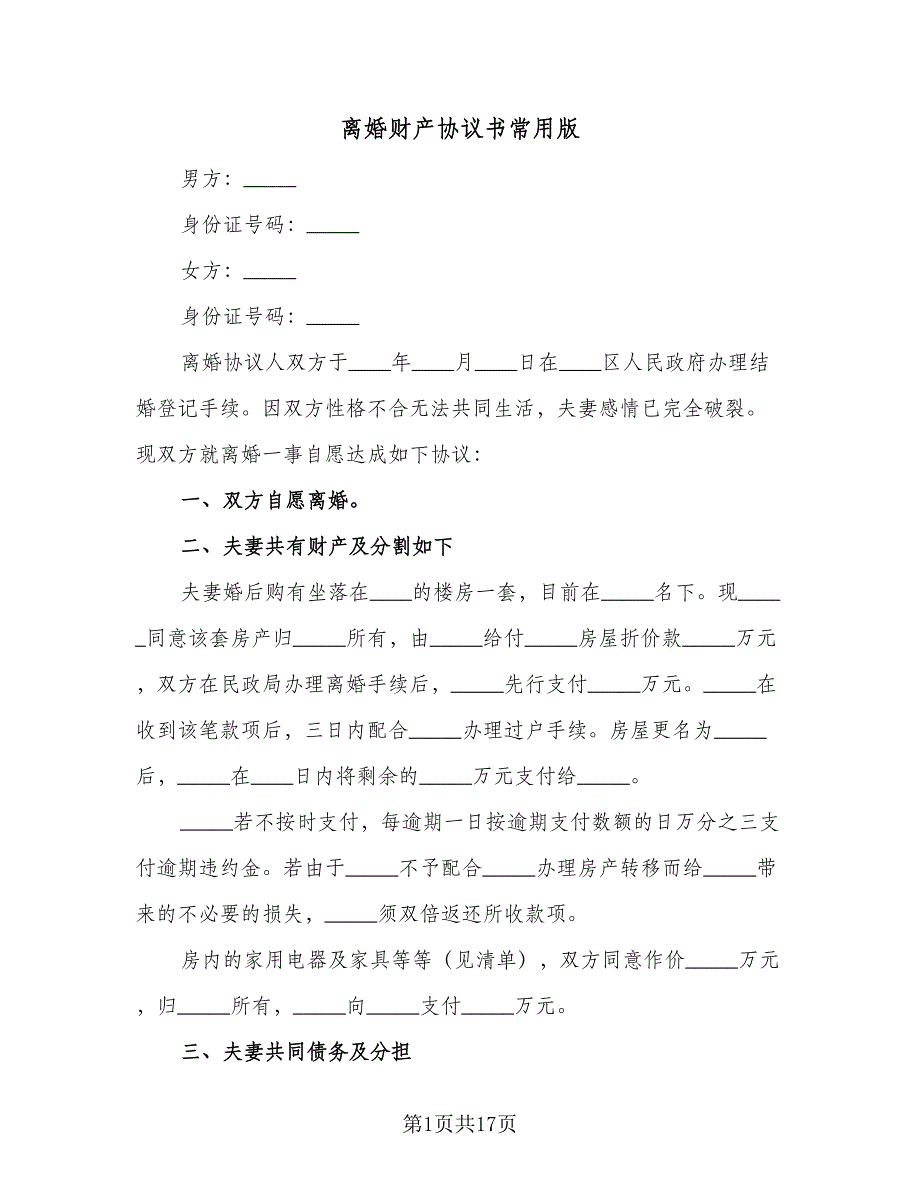 离婚财产协议书常用版
男方：_____
身份证号码：_____
女方：_____
身份证号码：_____
离婚协议人双方于____年____月____日在____区人民政府办理结
婚登记手续。因双方性格不合无法共同生活，夫妻感情已完全破裂。
现双方就离婚一事自愿达成如下协议：
一、双方自愿离婚。
二、夫妻共有财产及分割如下
夫妻婚后购有坐落在____的楼房一套，目前在_____名下。现____
_同意该套房产归_____所有，由_____给付_____房屋折价款_____万元
，双方在民政局办理离婚手续后，_____先行支付_____万元。_____在
收到该笔款项后，三日内配合_____办理过户手续。房屋更名为_____
后，_____在____日内将剩余的_____万元支付给_____。
_____若不按时支付，每逾期一日按逾期支付数额的日万分之三支
付逾期违约金。若由于_____不予配合_____办理房产转移而给_____带
来的不必要的损失，_____须双倍返还所收款项。
房内的家用电器及家具等等（见清单），双方同意作价_____万元
，归_____所有，_____向_____支付_____万元。
三、夫妻共同债务及分担
第1页共17页